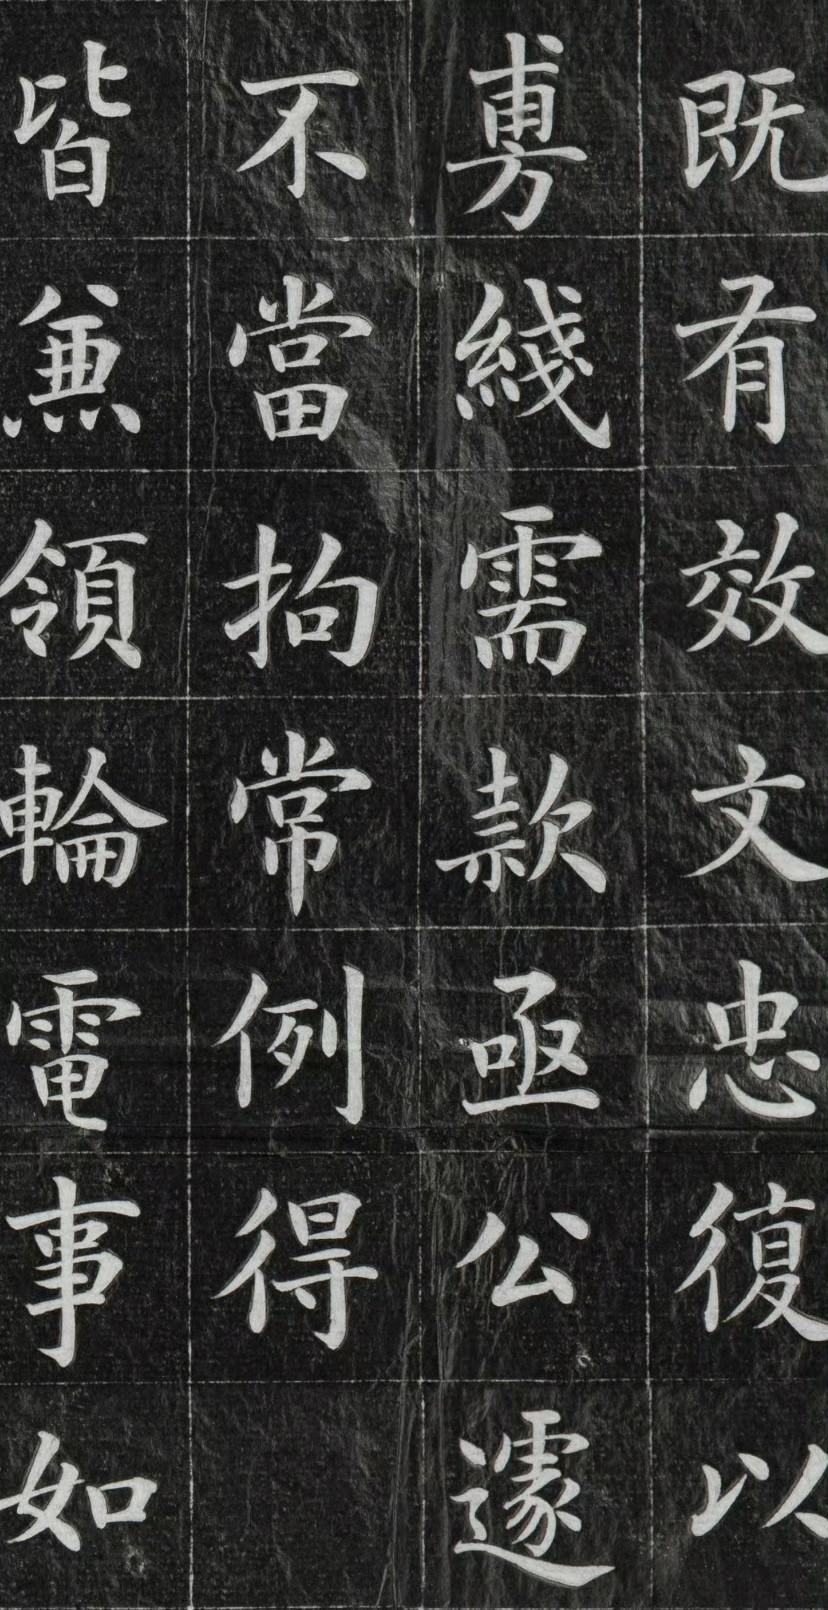 既有效文忠復以
旉綫需款亟公遽
不當拘常例得
皆兼領輪電事如